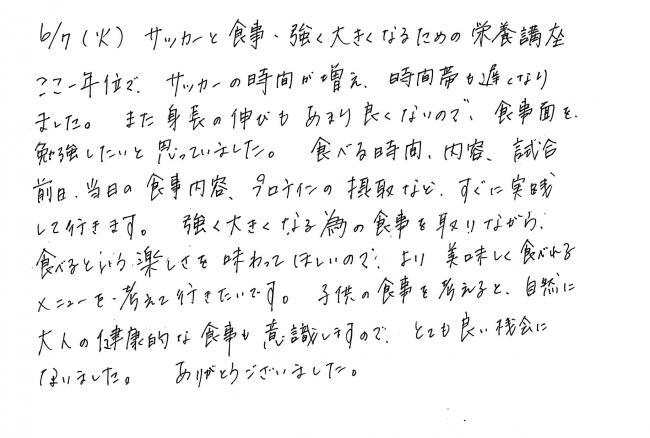 6/7(火) サッカーと食事・強く大きくなるための栄養講座
ここ一年位で、サッカーの時間が増え、時間帯も遅くなり
ました。また身長の伸びもあまり良くないので、食事面を
勉強したいと思っていました。食べる時間、内容、試合
前日、当日の食事内容、プロテインの摂取など、すぐに実践
して行きます。強く大きくなる為の食事を取りながら、
食べるという楽しさを味わってほしいので、より美味しく食べれる
メニューを考えて行きたいです。子供の食事を考えると、自然に
大人の健康的な食事も意識しますので、とても良い機会に
なりました。ありがとうございました。